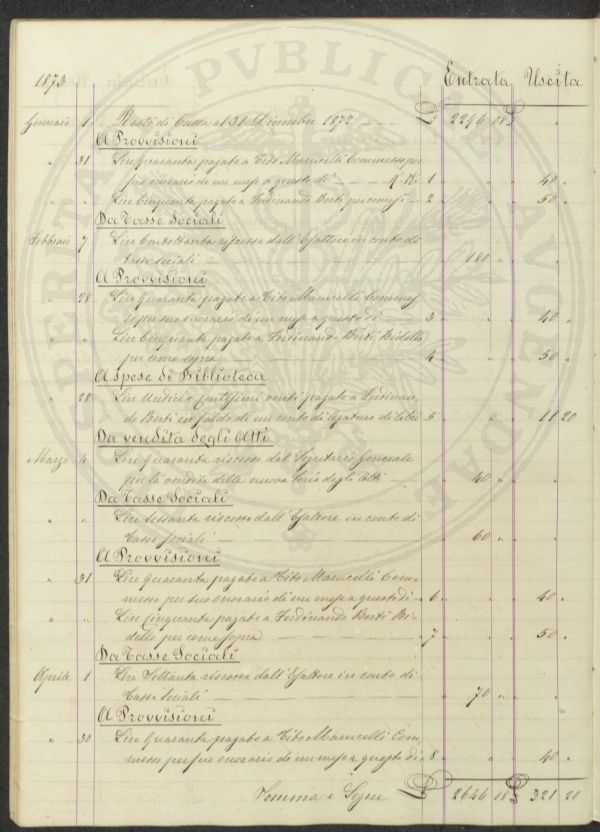 PROSPERITATI PVBLICAE AVGENDAE
1873 Entrata Uscita
Gennaio 1 Resto di Cassa al 31. Dicembre 1872 — — £ 2296 08 £ " "
A Provvisioni
" 31 Lire Quaranta pagate a Tito Marucelli Commesso per
suo onorario di un mese a questo dì — — — N.° 1 " " " 40 "
" " Lire Cinquanta pagate a Ferdinando Berti per simili — 2 " " " 50 "
Da Tasse Sociali
Febbraio 7 Lire Centottanta riscosse dall'Esattore in conto di
tasse sociali — — — " 180 " " "
A Provvisioni
" 28 Lire Quaranta pagate a Tito Marucelli Commes-
so per suo onorario di un mese a questo dì — 3 " " " 40 "
" " Lire Cinquanta pagate a Ferdinando Berti Bidello
per come sopra — — — 4 " " " 50 "
A Spese di Biblioteca
" 28 Lire Undici e centesimi venti pagate a Ferdinan-
do Berti in saldo di un conto di legature di libri 5 " " " 11 20
Da vendita degli Atti
Marzo 4 Lire Quaranta riscosse dal Segretario Generale
per la vendita della nuova Serie degli Atti — " 40 " " "
Da Tasse Sociali
" " Lire Sessanta riscosse dall'Esattore in conto di
Tasse Sociali — — — " 60 " " "
A Provvisioni
" 31 Lire Quaranta pagate a Tito Marucelli Com-
messo per suo onorario di un mese a questo dì — 6 " " " 40 "
" " Lire Cinquanta pagate a Ferdinando Berti Bi-
dello per come sopra — — — 7 " " " 50 "
Da Tasse Sociali
Aprile 1 Lire Settanta riscosse dall'Esattore in conto di
Tasse Sociali — — — " 70 " " "
A Provvisioni
" 30 Lire Quaranta pagate a Tito Marucelli Com-
messo per suo onorario di un mese a questo dì 8 " " " 40 "
Somma e Segue £ 2646 08 £ 321 20